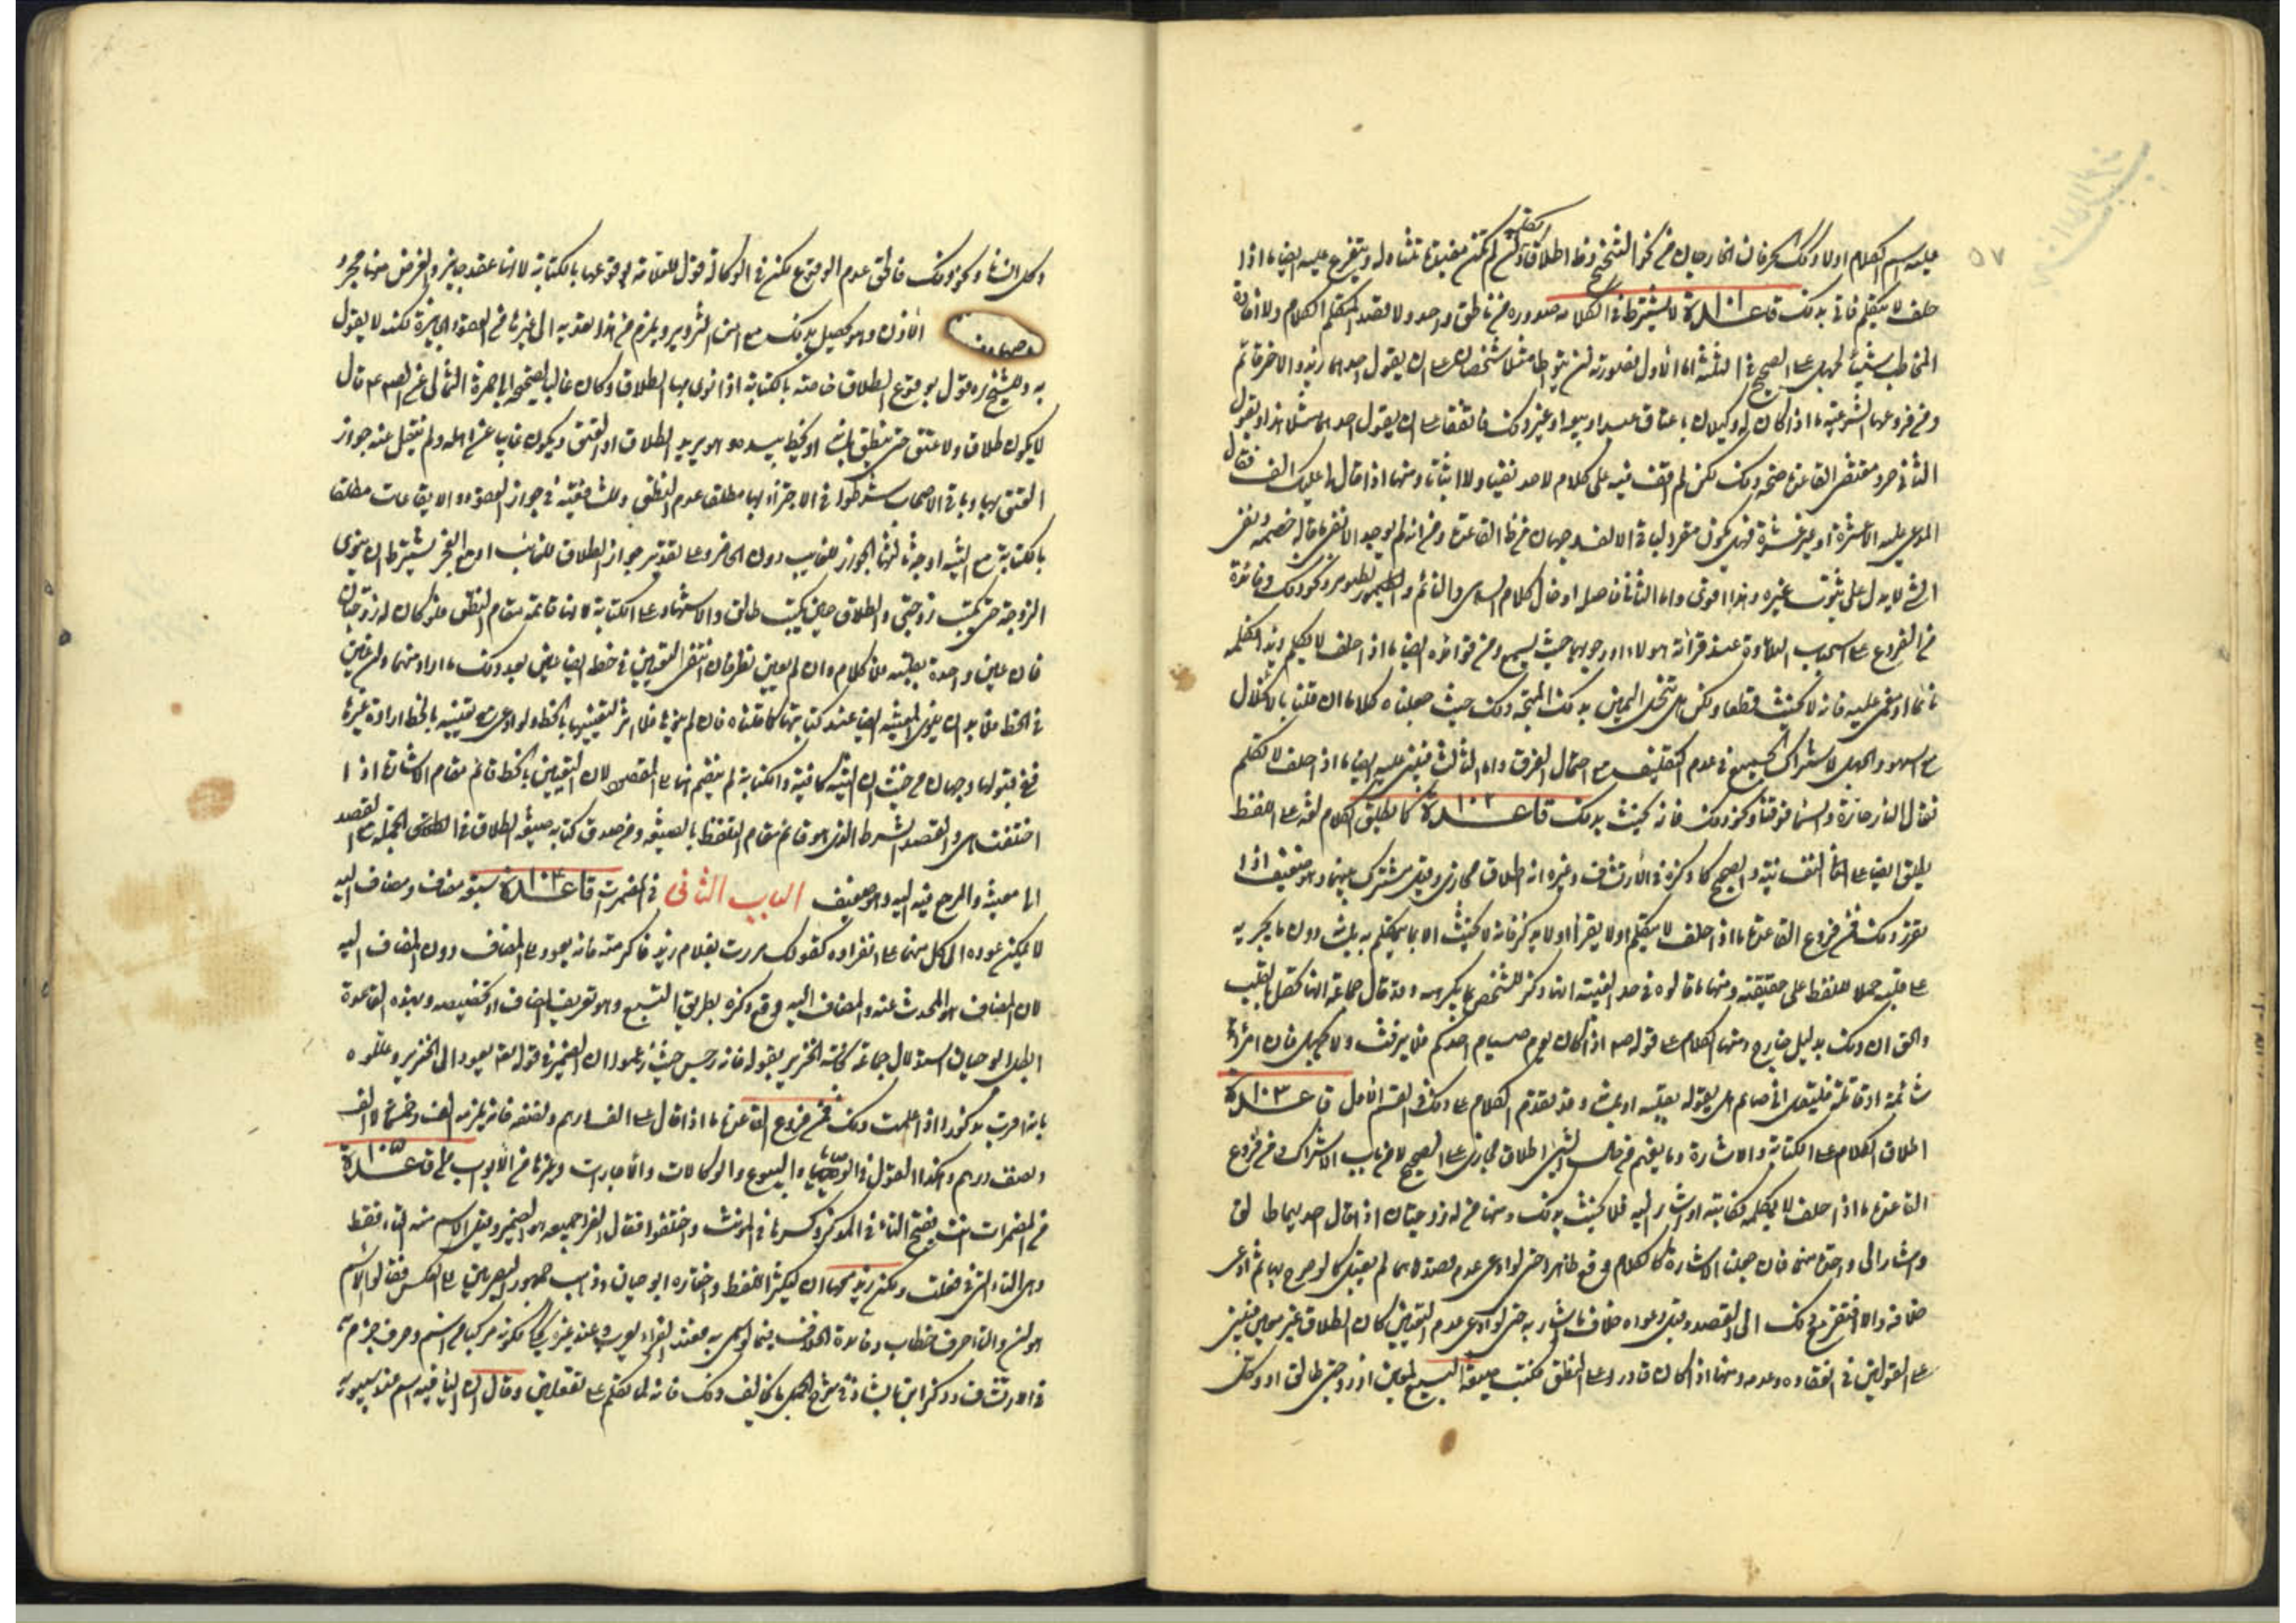 عليه اسم الكلام اولا وكذلك الحرفان الخارجان من نحو التنحنح ونظ اطلاقا
حلف لا يتكلم فاتى بذلك قاعدة ١٠١ لا يشترط في الكلام صدوره من ناطق واحد ولا قصد المتكلم الكلام ولا افادة
المخاطب شيئا يجهله على الصحيح في الثلثة اما الاول فصورته ان يتواطأ مثلا شخصان على ان يقول احدهما زيد والاخر قائم
ومن فروعها الشرعية ما اذا كان له وكيلان باعتاق عبد او بيعه او غير ذلك فاتفقا على ان يقول احدهما مثلا هذا ويقول
الثاني حر ومقتضى القاعدة صحة ذلك لكن لم اقف فيه على كلام لاحد نفيا ولا اثباتا ومنها اذا قال لي عليك الف فقال
المدعى عليه الا عشرة او غير عشرة فهل يكون مقرا بباقي الالف وجهان من نظ القاعدة ومن انه لم يوجد الا نفي ما قاله خصمه ونفي
الشي لا يدل على ثبوت غيره وهذا اقوى واما الثاني فاصله ادخال كلام الساهي والنائم والطيور ونحو ذلك وفائدة
من الفروع على استحباب التلاوة عند قراءة هولاء او وجوبها حيث يسمع ومن فوائده ايضا ما اذا حلف لا يكلم زيدا فكلمه
نائما او مغمى عليه فانه لا يحنث قطعا ولكن هل تنحل اليمين بذلك المتجه ذلك حيث جعلناه كلاما ان قلنا بالانحلال
مع السهو والجهل لاشتراك الجميع في عدم التكليف مع احتمال الفرق واما الثالث فيبنى عليه ايضا ما اذا حلف لا تكلم
فقال النار حارة والسماء فوقنا ونحو ذلك فانه يحنث بذلك قاعدة ١٠٢ كما يطلق الكلام لغة على اللفظ
يطلق ايضا على المعاني النفسانية والصحيح كما ذكره في الارتشاف وغيره انه اطلاق مجازي وقيل مشترك بينهما وهو ضعيف اذا
تقرر ذلك فمن فروع القاعدة ما اذا حلف لا يتكلم او لا يقرأ او لا يذكر فانه لا يحنث الا بما يتكلم به بلسانه دون ما يجريه
على قلبه حملا للفظ على حقيقته ومنها ما قالوه في حد الغيبة انها ذكر الشخص بما يكرهه وقد قال جماعة انها تحصل بالقلب
والحق ان ذلك بدليل خارج ومنها الكلام على قوله صه اذا كان يوم صيام احدكم فلا يرفث ولا يجهل فان امرؤ
شاتمه او قاتله فليقل اني صائم هل يقوله بقلبه او بلسانه وقد تقدم الكلام على ذلك في القسم الاول قاعدة ١٠٣
اطلاق الكلام على الكتابة والاشارة وما يفهم من حال الشيء اطلاق مجازي على الصحيح لا من باب الاشتراك فمن فروع
القاعدة ما اذا حلف لا يكلمه فكاتبه او اشار اليه فلا يحنث بذلك ومنها من له زوجتان اذا قال احديهما طالق
واشار الى واحدة منهما فان جعلنا الاشارة كالكلام وقع ظاهرا حتى لو ادعى عدم قصدها لم يقبل كما لو صرح بها ثم ادعى
خلافه والا افتقر مع ذلك الى القصد وقبل دعواه خلاف ما اشار به حتى لو ادعى عدم التعيين كان الطلاق غير معين فيبنى
على القولين في انعقاده وعدمه ومنها اذا كان قادرا على النطق فكتب صيغة البيع لمعين او زوجتي طالق او وكل
وكل انشاء ونحو ذلك فالحق عدم الوقوع لكن في الوكالة قول للعلامة بوقوعها بالكتابة لانها عقد جايز والغرض منها مجرد
الاذن وهو يحصل بذلك مع امن التزوير ويلزم من هذا تعديه الى غيرها من العقود الجايزة لكنه لا يقول
به وللشيخ ره قول بوقوع الطلاق خاصة بالكتابة اذا نوى بها الطلاق وكان غائبا لصحيحة ابي حمزة الثمالي عن الصادق ع قال
لا يكون طلاق ولا عتق حتى ينطق بلسانه او يخط بيده وهو يريد الطلاق او العتق ويكون غائبا عن اهله ولم ينقل عنه جواز
العتق بها وباقي الاصحاب شرطوا في الاجتزاء بها مطلقا عدم النطق وللشافعية في جواز العقود والايقاعات مطلقا
بالكتابة مع النية اوجه ثالثها الجواز للغايب دون الحاضر وعلى تقدير جواز الطلاق للغائب او مع العجز يشترط ان ينوي
الزوجة حين يكتب زوجتي والطلاق حين يكتب طالق والاشهاد على الكتابة لانها قائمة مقام النطق فلو كان له زوجتان
فان عين واحدة بقلبه فلا كلام وان لم يعين نظر فان انتفى التعيين في خطه ايضا عين بعد ذلك ما اراد منهما وان عين
في الخط فلا بد ان ينوي المعينة ايضا عند كتابتها كما قلناه فان لم ينوها فلا اثر لتعيينها بالخط ولو ادعى مع تعيينه بالخط ارادة غيرها
ففي قبولها وجهان من حيث ان النية كافية والكتابة لم ينضم اليها القصد ولان التعيين بالخط قائم مقام الاشارة اذا
اختلفت هي والقصد الشرط الذي هو قائم مقام التلفظ بالصيغة ومن صدق كتابة صيغة الطلاق في الجملة مع القصد
الى معينة والمرجع فيه اليه وهو ضعيف الباب الثاني في المضمرات قاعدة ١٠٤ اذا سبق مضاف ومضاف اليه
لا يمكن عوده الى كل منهما على انفراده كقولك مررت بغلام زيد فاكرمته فانه يعود على المضاف دون المضاف اليه
لان المضاف هو المحدث عنه والمضاف اليه وقع ذكره بطريق التبع وهو تعريف المضاف او تخصيصه وبهذه القاعدة
ابطل ابو حيان استدلال جماعة على نجاسة الخنزير بقوله فانه رجس حيث زعموا ان الضمير في قوله فانه يعود الى الخنزير وعللوه
بانه اقرب مذكور اذا علمت ذلك فمن فروع القاعدة ما اذا قال له على الف درهم ونصفه فانه يلزمه الف وخمسمائة لا الف
ونصف درهم وهكذا القول في الوصايا والبيوع والوكالات والاجارات وغيرها من الابواب قاعدة ١٠٥
من المضمرات انت بفتح التاء في المذكر وكسرها في المؤنث واختلفوا فقال الفراء جميعه هو الضمير وقيل الاسم منه التاء فقط
وهي التاء التي في فعلت ولكن زيد معها ان ليكثر اللفظ واختاره ابو حيان وذهب جمهور البصريين الى العكس فقالوا الاسم
هو ان والتاء حرف خطاب وفائدة الخلاف فيما لو سمي به فعند الفراء يعرب وعند غيره يحكى لكونه مركبا من اسم وحرف جزم به
في الارتشاف وذكر ابن بابشاذ في شرح الجمل ما يخالف ذلك فانه لما تكلم على تفعلين وقال ان الياء فيه اسم عند سيبويه